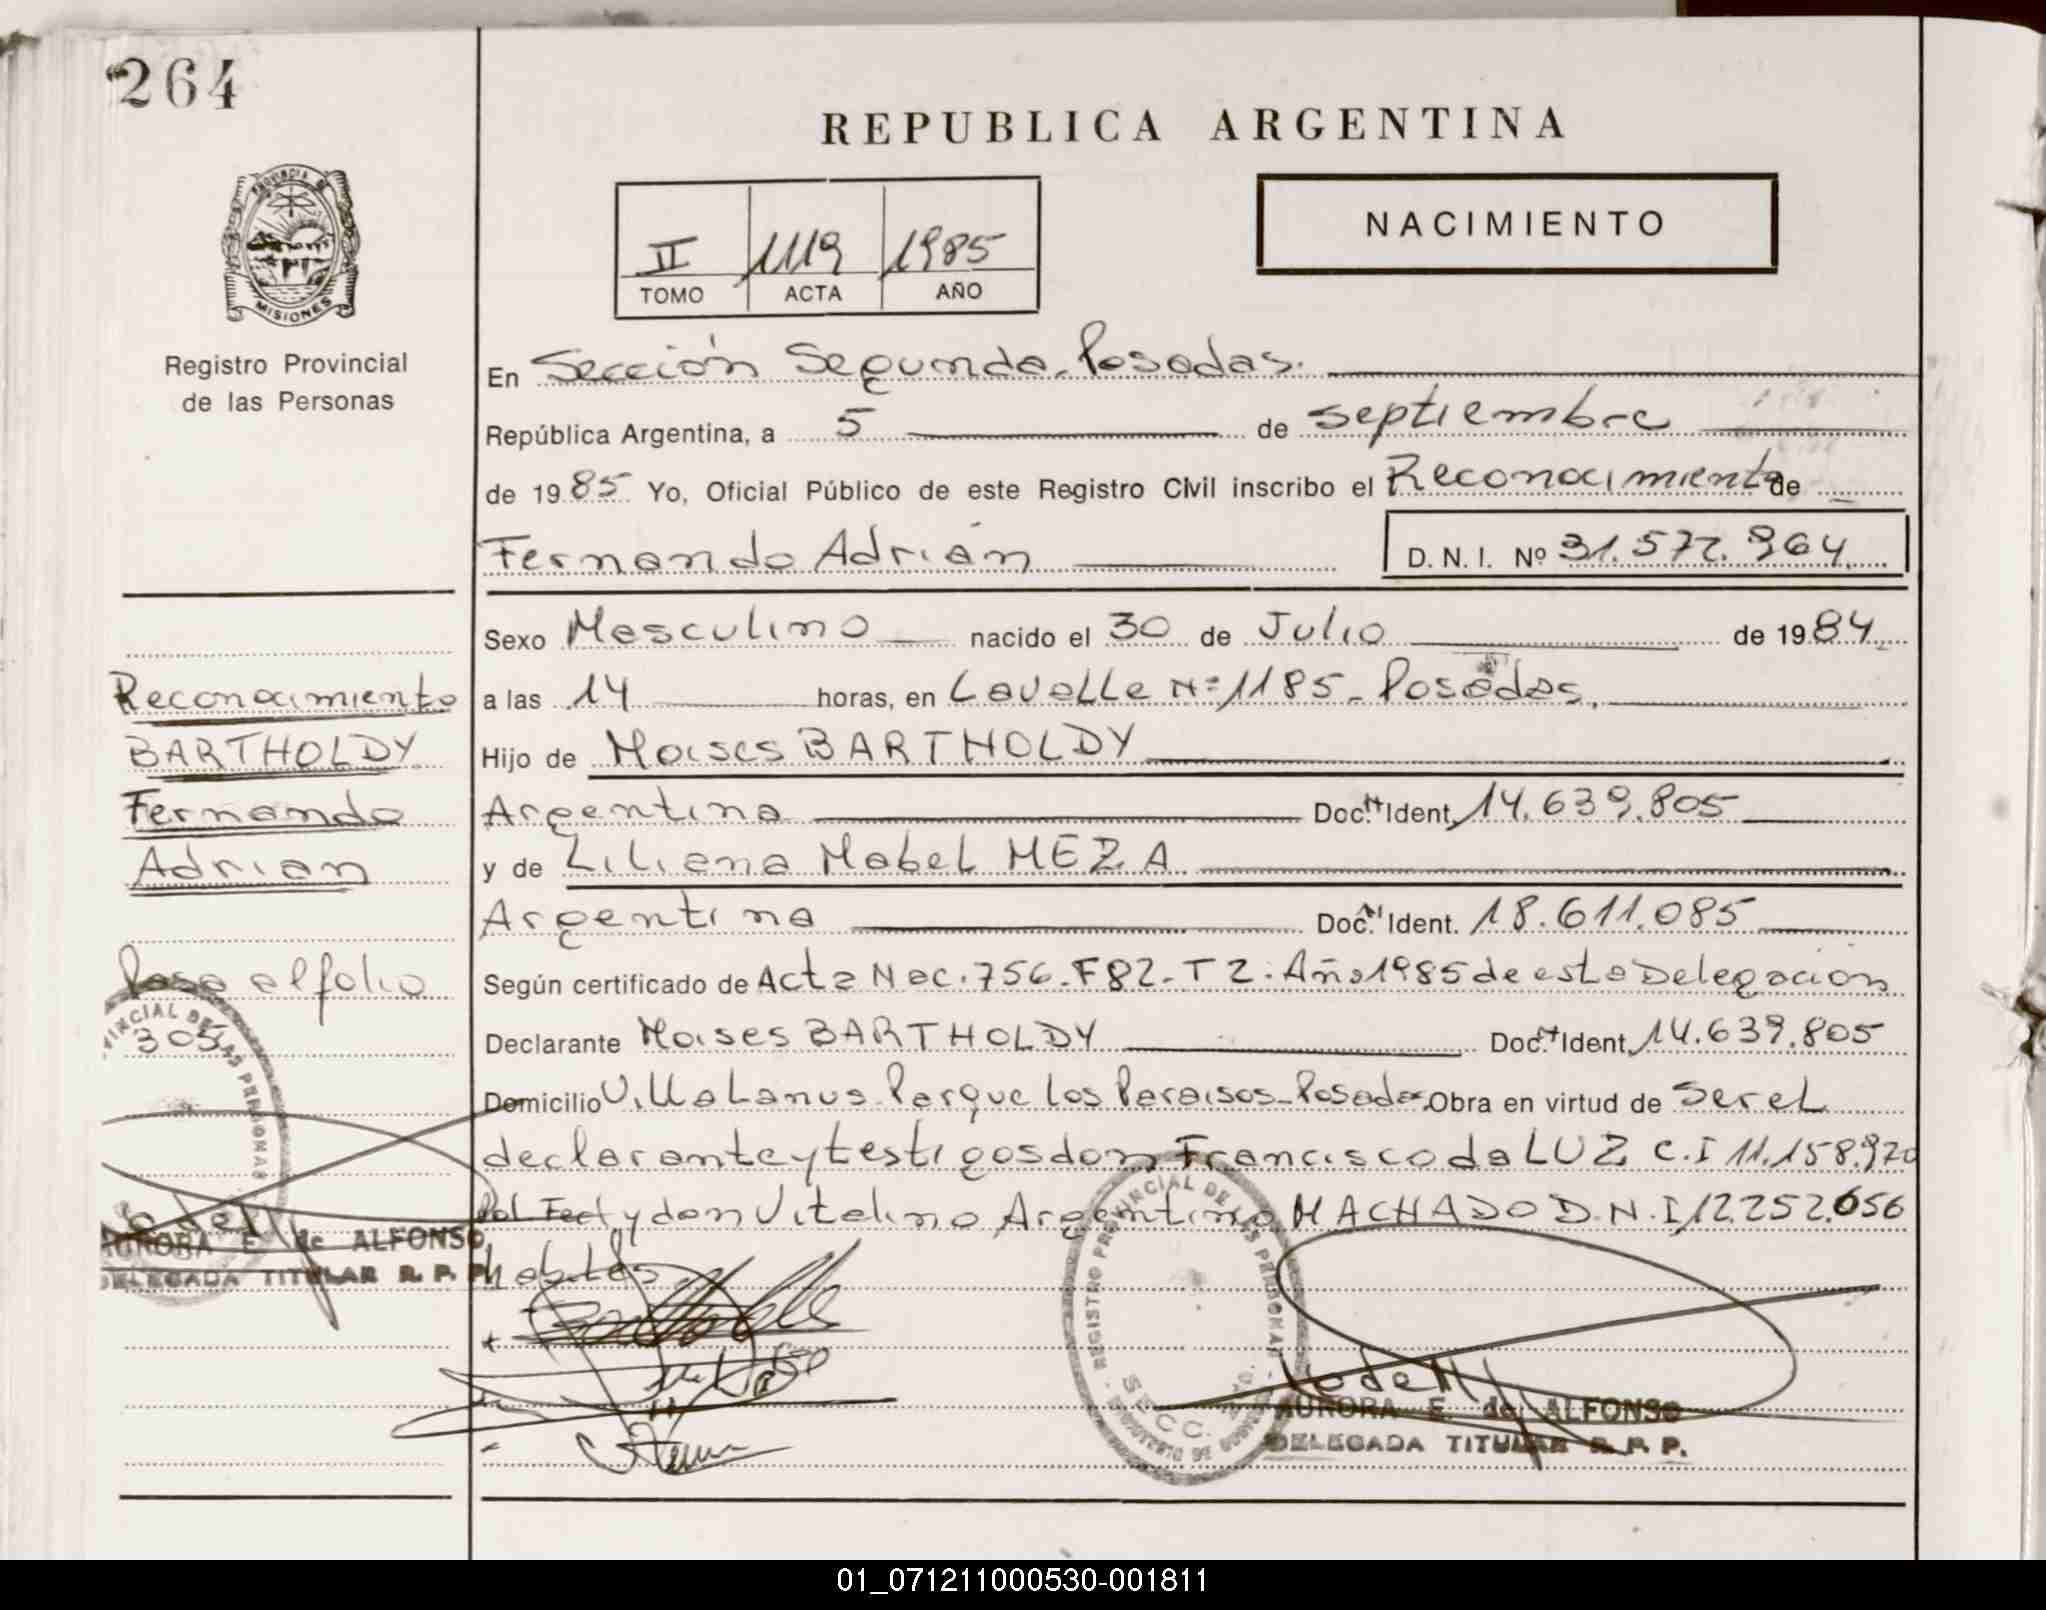 264
REPUBLICA ARGENTINA
PROVINCIA DE
MISIONES
Registro Provincial
de las Personas
II 1119 1985
TOMO ACTA AÑO
NACIMIENTO
En Sección Segunda. Posadas.
República Argentina, a 5 de septiembre
de 1985 Yo, Oficial Público de este Registro Civil inscribo el Reconocimiento de
Fernando Adrián D. N. I. Nº 31.572.964
Sexo Masculino nacido el 30 de Julio de 1984
a las 14 horas, en Lavalle Nº 1185 - Posadas,
Hijo de Moises BARTHOLDY
Argentina Doc. Ident. 14.639.805
y de Liliana Mabel MEZA
Argentina Doc. Ident. 18.611.085
Según certificado de Acta Nac. 756-F82-T2. Año 1985 de esta Delegación
Declarante Moises BARTHOLDY Doc. Ident. 14.639.805
Domicilio Villa Lanus Parque los Paraisos-Posadas Obra en virtud de ser el
declarante y testigos don Francisco da LUZ C.I 11.158.970
Pol Fed y don Vitalino Argentino MACHADO D.N.I 12.252.056
habiles
Reconocimiento
BARTHOLDY
Fernando
Adrian
Pasa al folio
305
AURORA E. de ALFONSO
DELEGADA TITULAR R. P. P.
REGISTRO PROVINCIAL DE LAS PERSONAS
SECC.
AURORA E. de ALFONSO
DELEGADA TITULAR R. P. P.
01_071211000530-001811